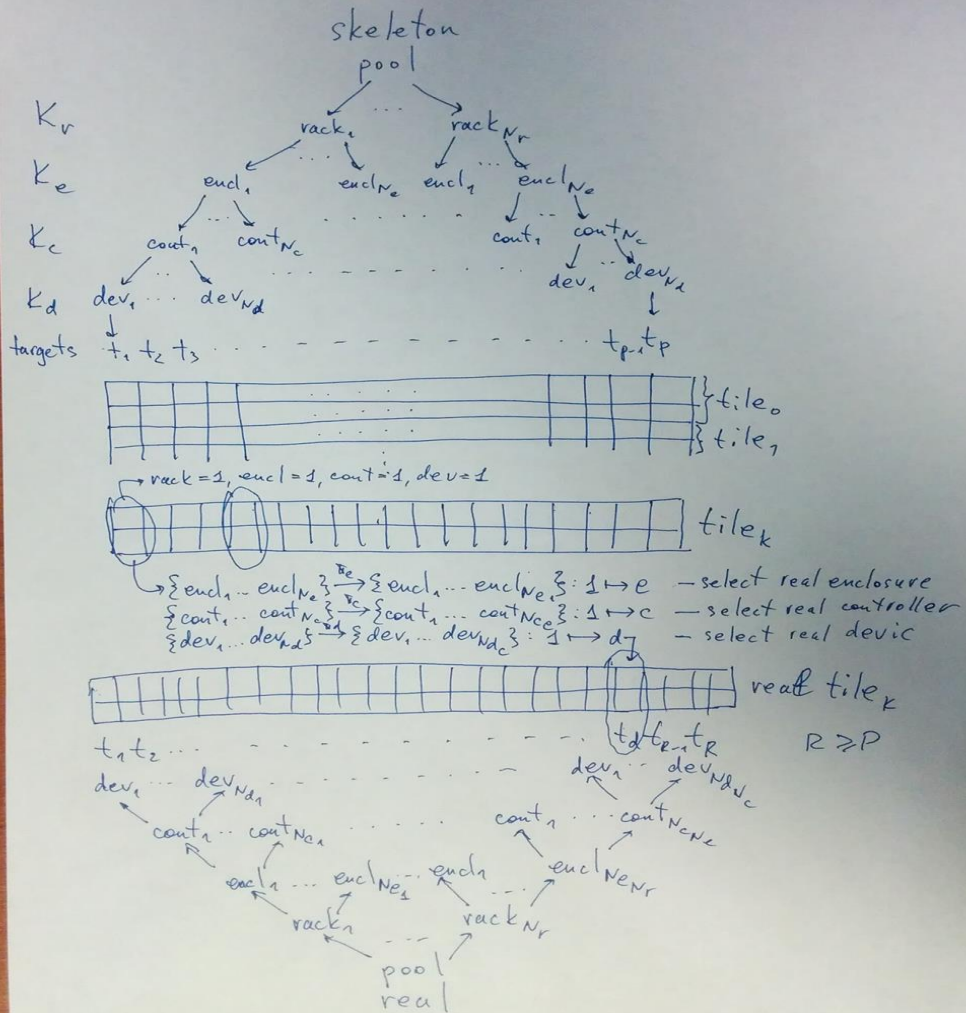 skeleton
pool
K_r rack_1 ... rack_Nr
K_e encl_1 ... encl_Ne encl_1 ... encl_Ne
K_c cont_1 ... cont_Nc cont_1 .. cont_Nc
K_d dev_1 ... dev_Nd dev_1 .. dev_Nd
targets t_1 t_2 t_3 t_p-1 t_p
tile_0
tile_1
rack=1, encl=1, cont=1, dev=1
tile_k
{encl_1 ... encl_Ne} → {encl_1 ... encl_Ne_1} : 1 ↦ e – select real enclosure
{cont_1 .. cont_Nc} → {cont_1 ... cont_Nc_e} : 1 ↦ c – select real controller
{dev_1 ... dev_Nd} → {dev_1 ... dev_Nd_c} : 1 ↦ d – select real devic
real tile_k
t_1 t_2 ... t_d t_R-1 t_R R ⩾ P
dev_1 ... dev_Nd_1 dev_1 .. dev_Nd_Nc
cont_1 .. cont_Nc_1 cont_1 ... cont_Nc_Ne
encl_1 ... encl_Ne_1 ... encl_1 ... encl_Ne_Nr
rack_1 ... rack_Nr
pool
real